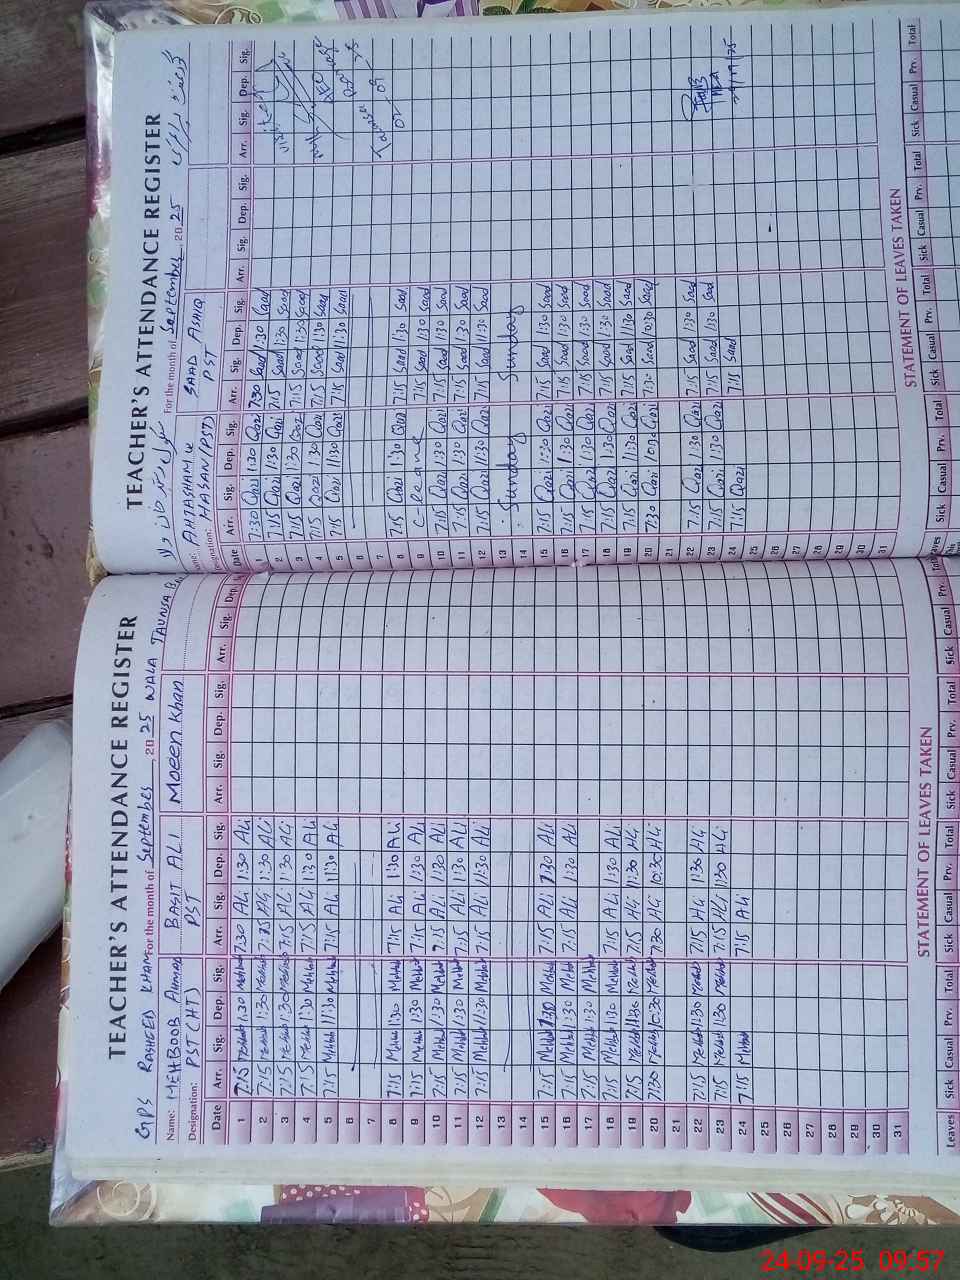 TEACHER'S ATTENDANCE REGISTER
GPS RASHEED KHAM For the month of September, 2025 WALA TAUNSA
Name: MEHBOOB AHMAD BASIT ALI Moeen Khan
Designation: PST (HT) PST
Date Arr. Sig. Dep. Sig. Arr. Sig. Dep. Sig. Arr. Sig. Dep. Sig. Arr. Sig. Dep.
1 7:15 Mehbob 1:30 Mehbob 7:30 ALi 1:30 ALi
2 7:15 Mehbob 1:30 Mehbob 7:15 ALi 1:30 ALi
3 7:15 Mehbob 1:30 Mehbob 7:15 ALi 1:30 ALi
4 7:15 Mehbob 1:30 Mehbob 7:15 ALi 1:30 ALi
5 7:15 Mehbob 11:30 Mehbob 7:15 ALi 11:30 ALi
6
7
8 7:15 Mehbob 1:30 Mehbob 7:15 ALi 1:30 ALi
9 7:15 Mehbob 1:30 Mehbob 7:15 ALi 1:30 ALi
10 7:15 Mehbob 1:30 Mehbob 7:15 ALi 1:30 ALi
11 7:15 Mehbob 1:30 Mehbob 7:15 ALi 1:30 ALi
12 7:15 Mehbob 11:30 Mehbob 7:15 ALi 11:30 ALi
13
14
15 7:15 Mehbob 1:30 Mehbob 7:15 ALi 1:30 ALi
16 7:15 Mehbob 1:30 Mehbob 7:15 ALi 1:30 ALi
17 7:15 Mehbob 1:30 Mehbob
18 7:15 Mehbob 1:30 Mehbob 7:15 ALi 1:30 ALi
19 7:15 Mehbob 11:30 Mehbob 7:15 ALi 11:30 ALi
20 7:30 Mehbob 10:30 Mehbob 7:30 ALi 10:30 ALi
21
22 7:15 Mehbob 1:30 Mehbob 7:15 ALi 1:30 ALi
23 7:15 Mehbob 1:30 Mehbob 7:15 ALi 1:30 ALi
24 7:15 Mehbob 7:15 ALi
25
26
27
28
29
30
31
STATEMENT OF LEAVES TAKEN
Leaves Sick Casual Prv. Total Sick Casual Prv. Total Sick Casual Prv. Total Sick Casual Prv.
TEACHER'S ATTENDANCE REGISTER
For the month of September, 2025
Name: AHTASHAM UL SAAD ASHIQ
Designation: HASAN (PST) PST
Date Arr. Sig. Dep. Sig. Arr. Sig. Dep. Sig. Arr. Sig. Dep. Sig. Arr. Sig. Dep. Sig.
1 7:30 Qazi 1:30 Qazi 7:30 Saad 1:30 Saad
2 7:15 Qazi 1:30 Qazi 7:15 Saad 1:30 Saad
3 7:15 Qazi 1:30 Qazi 7:15 Saad 1:30 Saad
4 7:15 Qazi 1:30 Qazi 7:15 Saad 1:30 Saad
5 7:15 Qazi 11:30 Qazi 7:15 Saad 11:30 Saad
6
7
8 7:15 Qazi 1:30 Qazi 7:15 Saad 1:30 Saad
9 C-leave 7:15 Saad 1:30 Saad
10 7:15 Qazi 1:30 Qazi 7:15 Saad 1:30 Saad
11 7:15 Qazi 1:30 Qazi 7:15 Saad 1:30 Saad
12 7:15 Qazi 11:30 Qazi 7:15 Saad 11:30 Saad
13 Sunday Sunday
14
15 7:15 Qazi 1:30 Qazi 7:15 Saad 1:30 Saad
16 7:15 Qazi 1:30 Qazi 7:15 Saad 1:30 Saad
17 7:15 Qazi 1:30 Qazi 7:15 Saad 1:30 Saad
18 7:15 Qazi 1:30 Qazi 7:15 Saad 1:30 Saad
19 7:15 Qazi 11:30 Qazi 7:15 Saad 11:30 Saad
20 7:30 Qazi 10:30 Qazi 7:30 Saad 10:30 Saad
21
22 7:15 Qazi 1:30 Qazi 7:15 Saad 1:30 Saad
23 7:15 Qazi 1:30 Qazi 7:15 Saad 1:30 Saad
24 7:15 Qazi 7:15 Saad
25
26
27
28
29
30
31
STATEMENT OF LEAVES TAKEN
Sick Casual Prv. Total Sick Casual Prv. Total Sick Casual Prv. Total Sick Casual Prv. Total
24-09-25 09:57